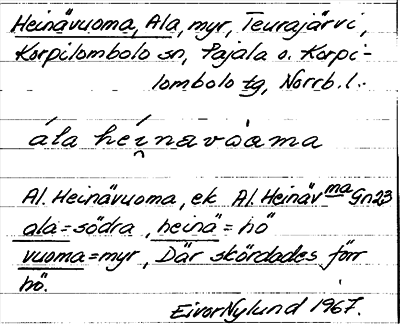 Heinävuoma, Ala, myr, Teurajärvi,
Korpilombolo sn, Pajala o. Korpi-
lombolo tg, Norrb. l.
ála héi̯navòama
Al. Heinävuoma, ek Al. Heinävma Gn23
ala = södra, heinä = hö
vuoma = myr, Där skördades förr
hö.
Eivor Nylund 1967.